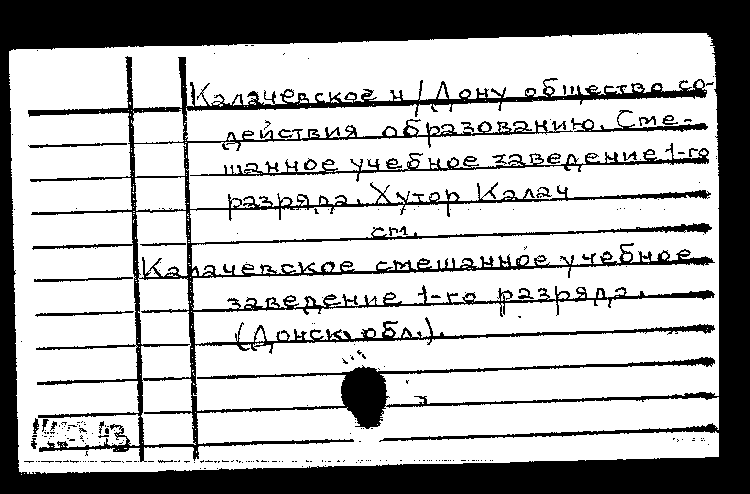 Калачевское н/Дону общество со-
действия образованию. Сме-
шанное учебное заведение 1-го
разряда. Хутор Калач
см.
Калачевское смешанное учебное
заведение 1-го разряда.
(Донск. обл.).